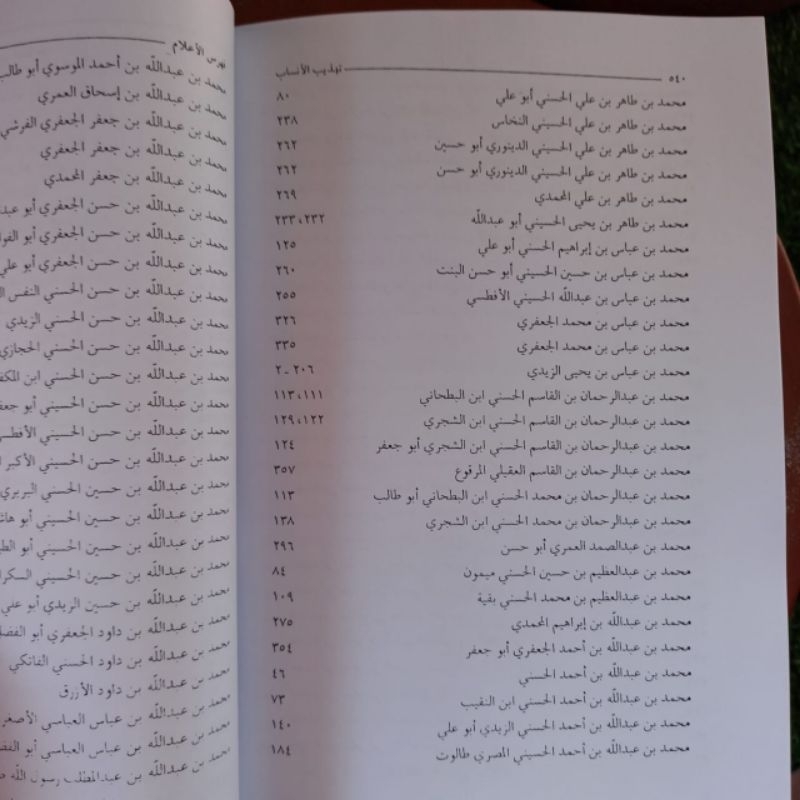 ٥٤٠ تهذيب الأنساب
محمد بن طاهر بن علي الحسني أبو علي ٨٠
محمد بن طاهر بن علي الحسيني النخاس ٢٣٨
محمد بن طاهر بن علي الحسيني الدينوري أبو حسين ٢٦٢
محمد بن طاهر بن علي الحسيني الدينوري أبو حسن ٢٦٢
محمد بن طاهر بن علي المحمدي ٢٦٩
محمد بن طاهر بن يحيى الحسيني أبو عبدالله ٢٣٢، ٢٣٣
محمد بن عباس بن إبراهيم الحسني أبو علي ١٢٥
محمد بن عباس بن حسين الحسيني أبو حسن البنت ٢٦٠
محمد بن عباس بن عبدالله الحسيني الأفطسي ٢٥٥
محمد بن عباس بن محمد الجعفري ٣٢٦
محمد بن عباس بن محمد الجعفري ٣٣٥
محمد بن عباس بن يحيى الزيدي ٢٠٦ ـ ٢
محمد بن عبدالرحمان بن القاسم الحسني ابن البطحاني ١١١، ١١٣
محمد بن عبدالرحمان بن القاسم الحسني ابن الشجري ١٢٢، ١٢٩
محمد بن عبدالرحمان بن القاسم الحسني ابن الشجري أبو جعفر ١٢٤
محمد بن عبدالرحمان بن القاسم العقيلي المرقوع ٣٥٧
محمد بن عبدالرحمان بن محمد الحسني ابن البطحاني أبو طالب ١١٣
محمد بن عبدالرحمان بن محمد الحسني ابن الشجري ١٣٨
محمد بن عبدالصمد العمري أبو حسن ٢٩٦
محمد بن عبدالعظيم بن حسين الحسني ميمون ٨٤
محمد بن عبدالعظيم بن محمد الحسني بقية ١٠٩
محمد بن عبدالله بن إبراهيم المحمدي ٢٧٥
محمد بن عبدالله بن أحمد الجعفري أبو جعفر ٣٥٤
محمد بن عبدالله بن أحمد الحسني ٤٦
محمد بن عبدالله بن أحمد الحسني ابن النقيب ٧٣
محمد بن عبدالله بن أحمد الحسني الزيدي أبو علي ١٤٠
محمد بن عبدالله بن أحمد الحسيني المصري طالوت ١٨٤
فهرس الأعلام
محمد بن عبدالله بن أحمد الموسوي أبو طالب
محمد بن عبدالله بن إسحاق العمري
محمد بن عبدالله بن جعفر الجعفري القرشي
محمد بن عبدالله بن جعفر الجعفري
محمد بن عبدالله بن جعفر المحمدي
محمد بن عبدالله بن حسن الجعفري أبو
محمد بن عبدالله بن حسن الجعفري أبو
محمد بن عبدالله بن حسن الجعفري أبو علي
محمد بن عبدالله بن حسن الحسني النفس
محمد بن عبدالله بن حسن الحسني الزيدي
محمد بن عبدالله بن حسن الحسني الحجازي
محمد بن عبدالله بن حسن الحسني ابن
محمد بن عبدالله بن حسن الحسيني أبو
محمد بن عبدالله بن حسن الحسيني
محمد بن عبدالله بن حسن الحسيني الأكبر
محمد بن عبدالله بن حسين الحسني البربري
محمد بن عبدالله بن حسين الحسيني أبو
محمد بن عبدالله بن حسين الحسيني أبو
محمد بن عبدالله بن حسين الحسيني
محمد بن عبدالله بن حسين الزيدي أبو علي
محمد بن عبدالله بن داود الجعفري أبو
محمد بن عبدالله بن داود الحسني الفاتكي
محمد بن عبدالله بن داود الأزرق
محمد بن عبدالله بن عباس العباسي
محمد بن عبدالله بن عباس العباسي أبو
محمد بن عبدالله بن عبدالمطلب رسول الله